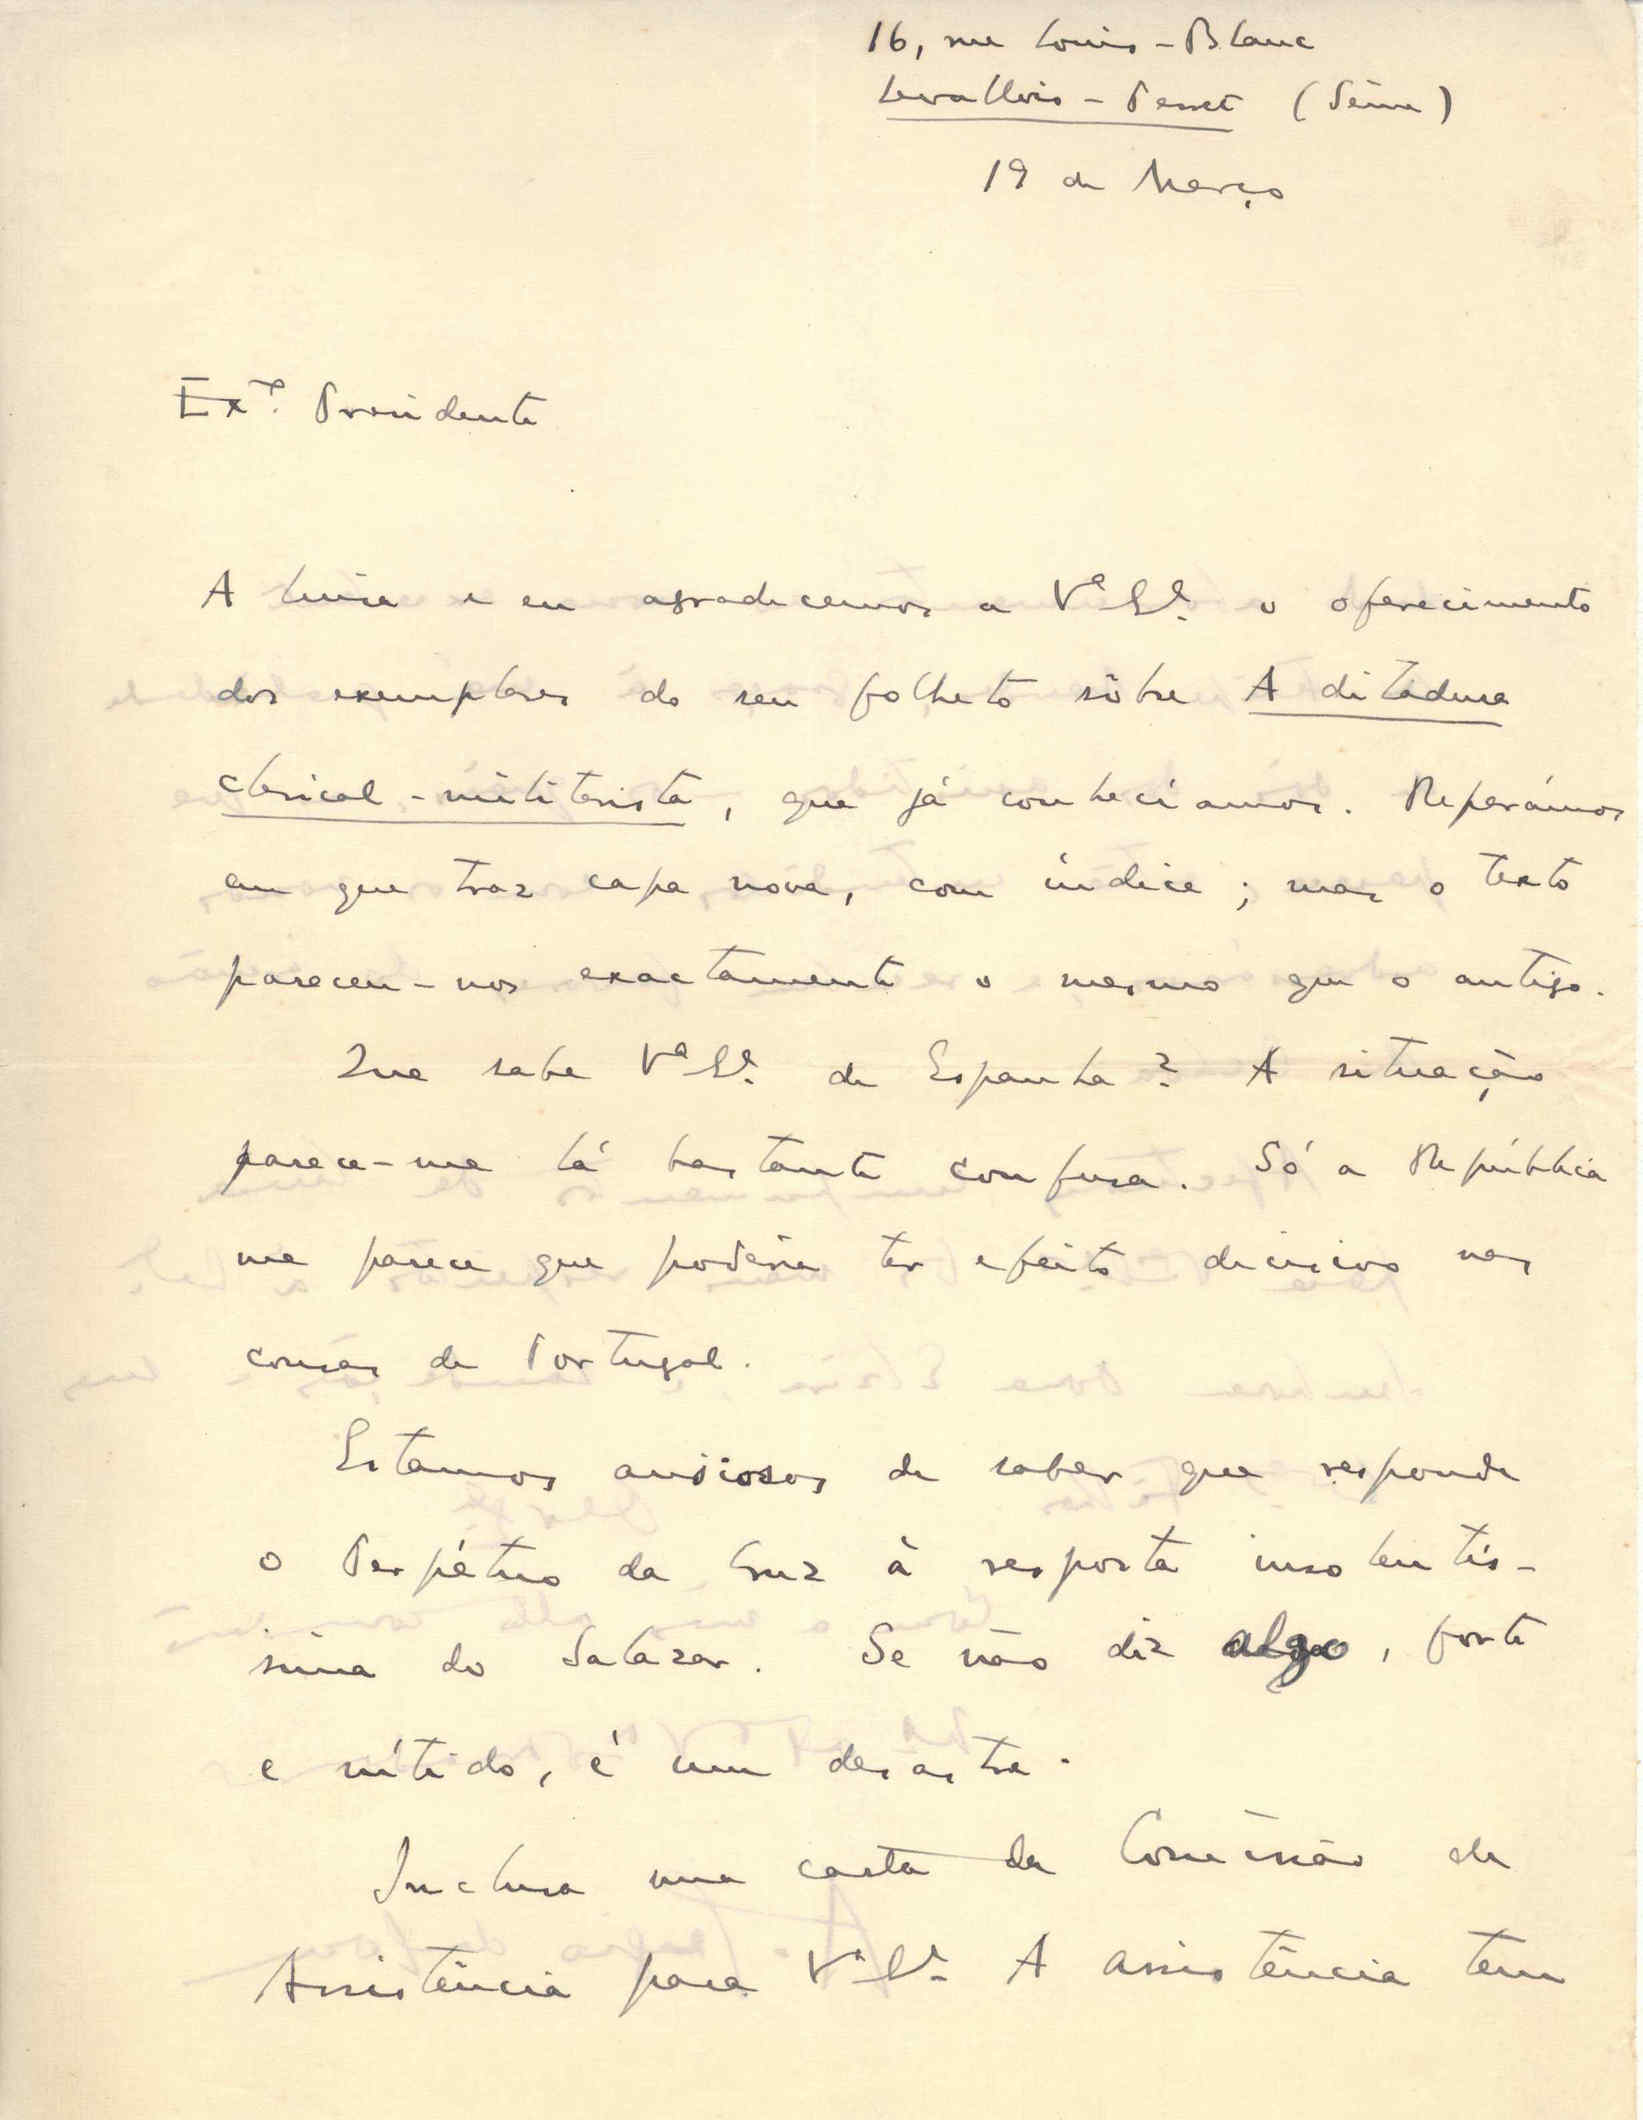 16, rue Louis-Blanc
Levallois-Perret (Seine)
19 de Março
Exmo. Presidente
A Luisa e eu agradecemos a Va Exa. o oferecimento
dos exemplares do seu folheto sôbre A ditadura
clerical-militarista, que já conheciamos. Reparámos
em que traz capa nova, com índice; mas o texto
pareceu-nos exactamente o mesmo que o antigo.
Que sabe Va Exa. de Espanha? A situação
parece-me lá bastante confusa. Só a República
me parece que poderia ter efeito decisivo nas
cousas de Portugal.
Estamos ansiosos de saber que responde
o Perpétuo da Cruz à resposta insolentís-
sima do Salazar. Se não diz algo, forte
e nítido, é um desastre.
Inclusa uma carta da Comissão de
Assistência para Va Exa. A assistência tem